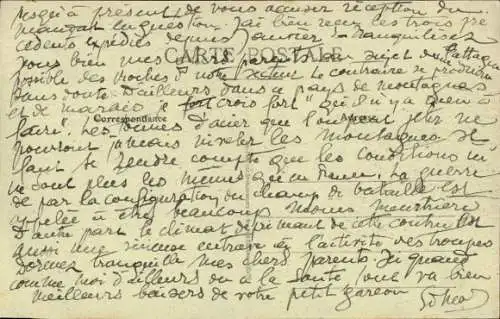 jusqu'à présent de vous accuser réception du
mandat en question. J'ai bien reçu les trois pré
cédents expédiés depuis Janvier. Tranquilisez
CARTE POSTALE
vous bien mes chers parents au sujet de l'attaque
possible des Boches notre secteur le contraire se produira
sans doute. D'ailleurs dans ce pays de montagnes
et de marais je crois fort "qu'il n'y a rien à
Correspondance
faire". Les tonnes d'acier que l'on peut jeter ne
pourront jamais niveler les montagnes. Il
faut se rendre compte que les conditions ici
ne sont plus les mêmes qu'en France. La guerre
de par la configuration du champ de bataille est
appelée à être beaucoup moins meurtrière
D'autre part le climat déprimant de cette contrée est
aussi une sérieuse entrave à l'activité des troupes
Dormez tranquille mes chers parents. Si quand
comme moi d'ailleurs on a la santé, tout va bien
Meilleurs baisers de votre petit garçon